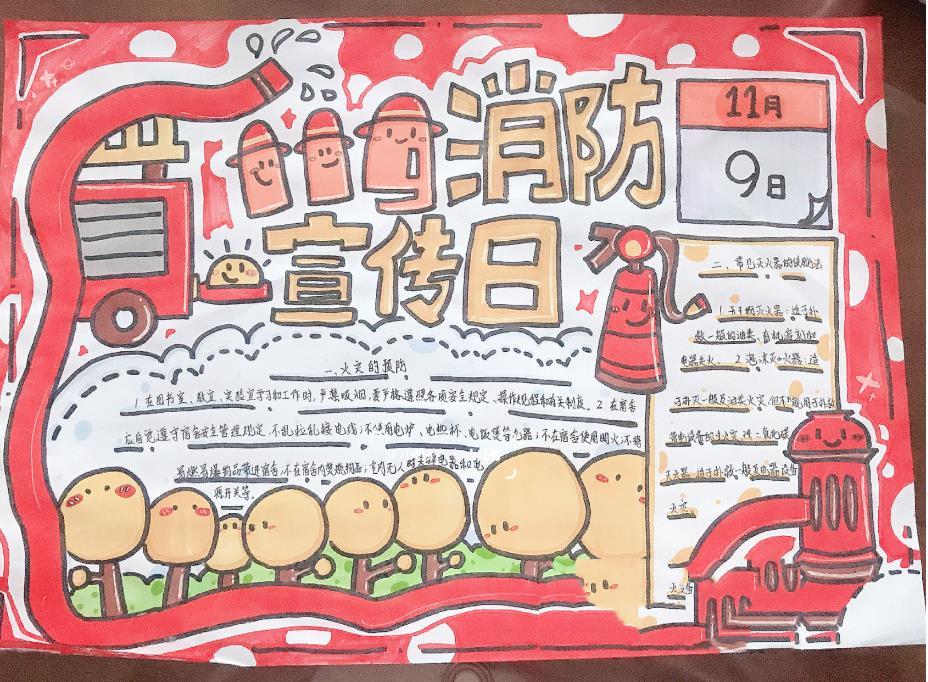 119消防
宣传日
11月
9日
一、火灾的预防
1.在图书室、教室、实验室学习和工作时,严禁吸烟,要严格遵照各项安全规定、操作规程和有关制度。2.在宿舍
应自觉遵守宿舍安全管理规定,不乱拉乱接电线;不使用电炉、电热杯、电饭煲等电器;不在宿舍使用明火;不将
易燃易爆物品带进宿舍;不在室内燃烧物品;室内无人时关掉电器和电
源开关等。
二、常见灭火器的使用方法
1.干粉灭火器:适于扑
救一般的油类、有机溶剂和
电器类火、2.泡沫灭火器:适
于扑灭一般及油类火灾,但不能用于扑救
灭火器:适于扑救一般及电器设备
火灾